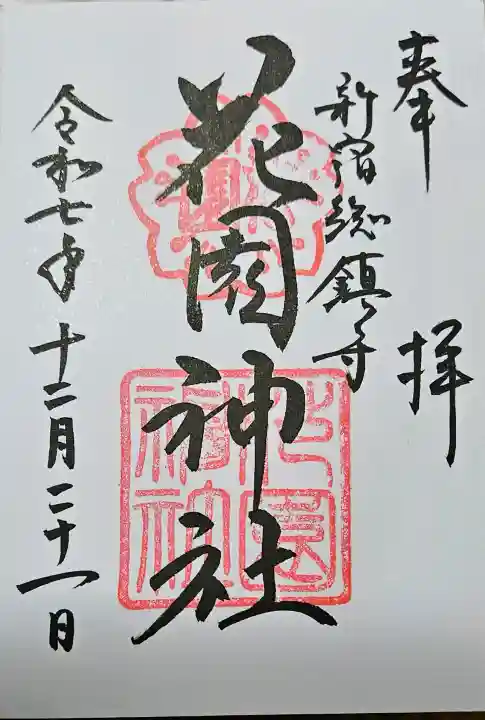 奉拝
新宿総鎮守
花園神社
令和七年十二月二十一日
花園
神社